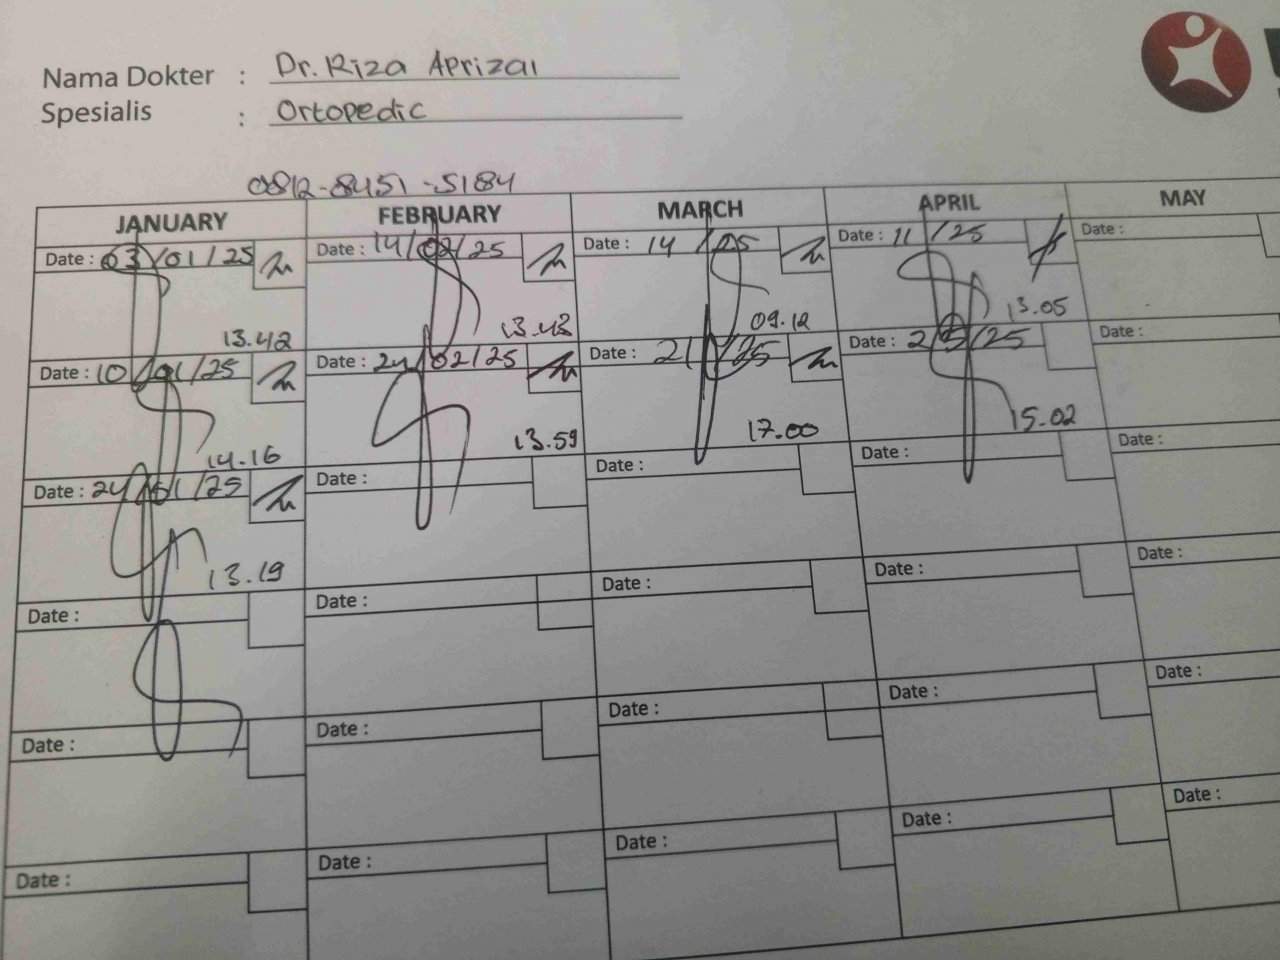 Nama Dokter : Dr. Riza Aprizal
Spesialis : Ortopedic
0812-8451-5184
JANUARY FEBRUARY MARCH APRIL MAY
Date : 03/01/25 Date : 14/02/25 Date : 14 / 25 Date : 11 /25 Date :
13.42 13.43 09.12 13.05
Date : 10/01/25 Date : 24/02/25 Date : 21/ /25 Date : 2/5/25 Date :
14.16 13.59 17.00 15.02
Date : 24/01/25 Date : Date : Date : Date :
13.19
Date : Date : Date : Date : Date :
Date : Date : Date : Date : Date :
Date : Date : Date : Date : Date :